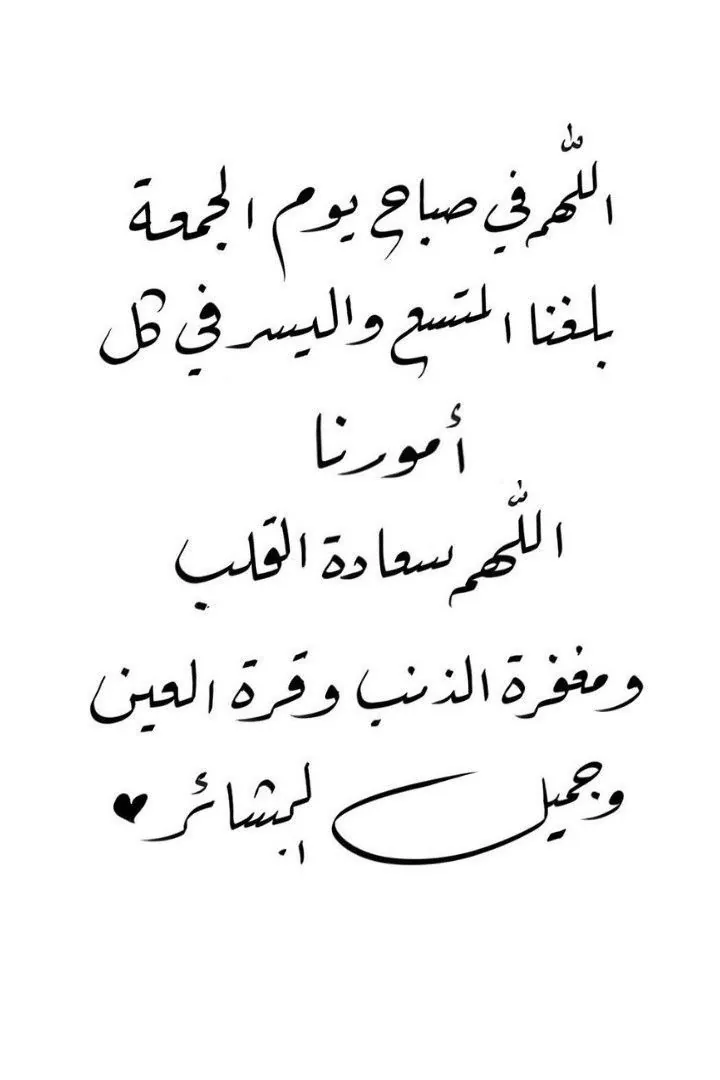 اللّٰهم في صباح يوم الجمعة
بلغنا المتسع واليسر في كل
أمورنا
اللّٰهم سعادة القلب
ومغفرة الذنب وقرة العين
وجميل البشائر ♥